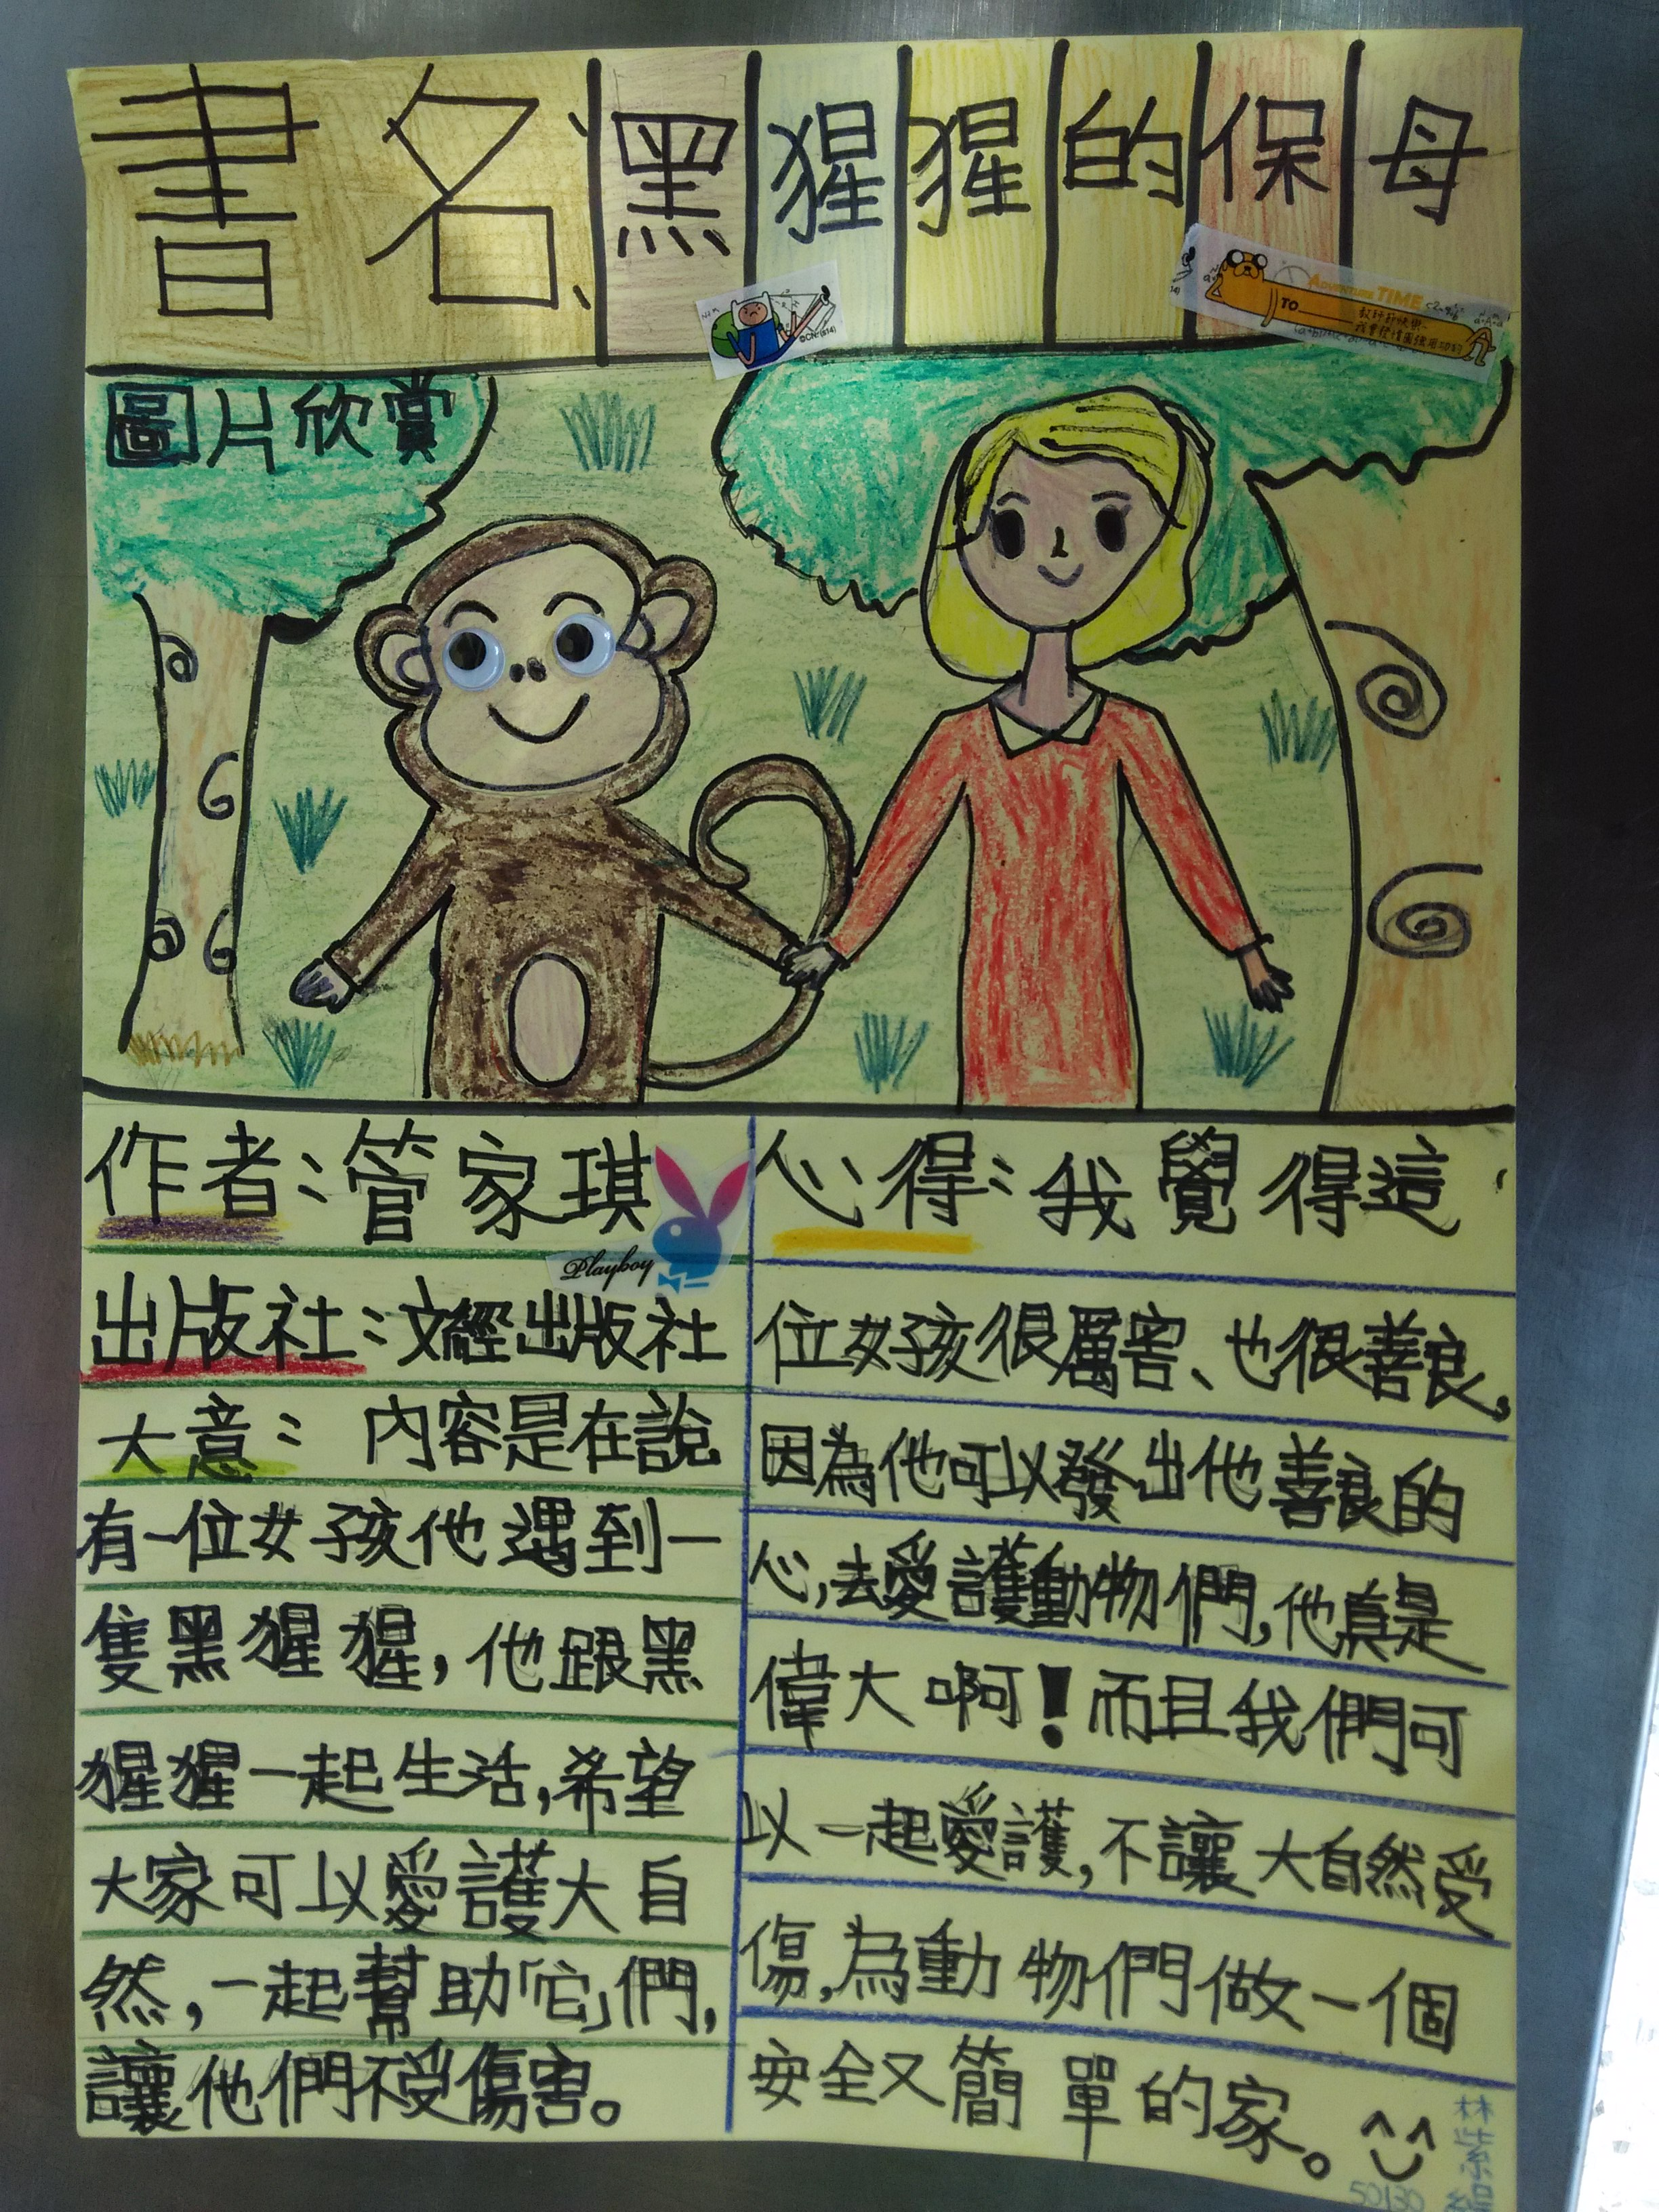 書名:黑猩猩的保母
ADVENTURE TIME
TO
©CN (S14)
圖片欣賞
作者:管家琪
Playboy
出版社:文經出版社
大意: 內容是在說
有一位女孩他遇到一
隻黑猩猩,他跟黑
猩猩一起生活,希望
大家可以愛護大自
然,一起幫助「它」們,
讓他們不受傷害。
心得:我覺得這
位女孩很厲害、也很善良,
因為他可以發出他善良的
心,去愛護動物們,他真是
偉大啊!而且我們可
以一起愛護,不讓大自然受
傷,為動物們做一個
安全又簡單的家。
林
50130